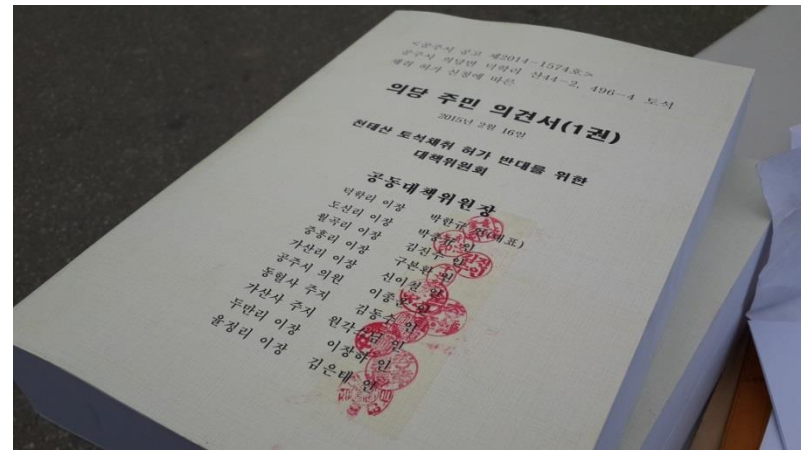 <공주시 공고 제2014-1574호>
공주시 의당면 덕학리 산44-2, 496-4 토석
채취 허가 신청에 따른
의당 주민 의견서(1권)
2015년 2월 16일
천태산 토석채취 허가 반대를 위한
대책위원회
공동대책위원장
덕학리 이장 박한규 인(대표)
도신리 이장 박종규 인
월곡리 이장 김진수 인
중흥리 이장 구본환 인
가산리 이장 신이철 인
공주시 의원 이종운 인
동혈사 주지 김동수 인
가산사 주지 원각스님 인
두만리 이장 이장하 인
율정리 이장 김은태 인